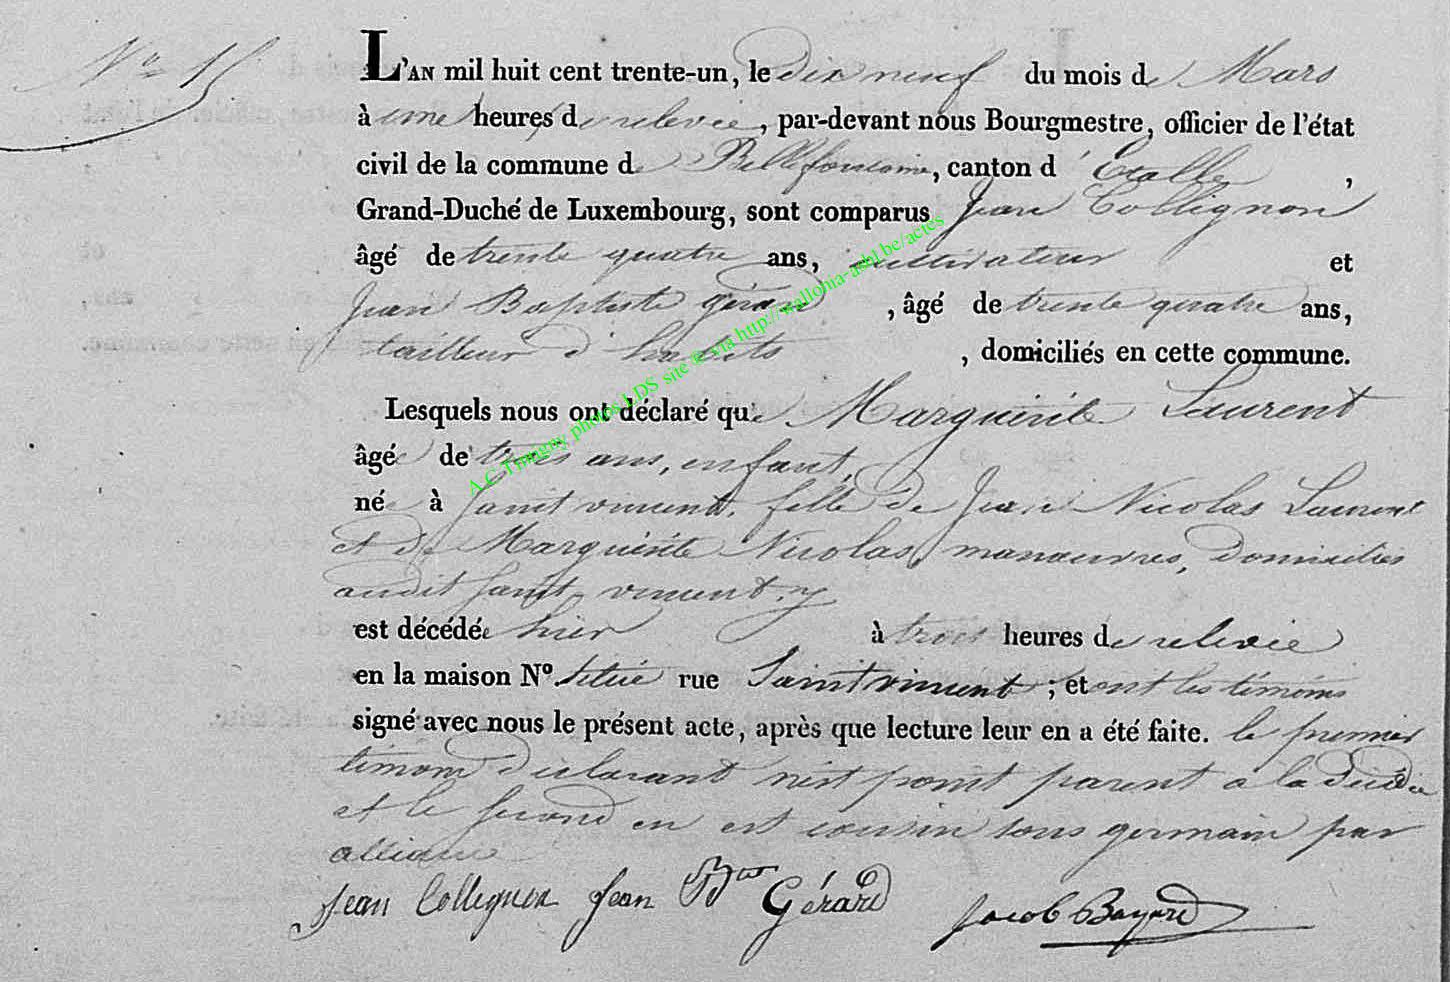 N° 15
L'AN mil huit cent trente-un, le dix neuf du mois de Mars
à une heures de relevée, par-devant nous Bourgmestre, officier de l'état
civil de la commune de Bellefontaine, canton d'Etalle,
Grand-Duché de Luxembourg, sont comparus Jean Collignon
âgé de trente quatre ans, cultivateur et
Jean Baptiste Gérard, âgé de trente quatre ans,
tailleur d'habits, domiciliés en cette commune.
Lesquels nous ont déclaré que Marguerite Laurent
âgée de trois ans, enfant,
née à Saint vincent, fille de Jean Nicolas Laurent
et de Marguerite Nicolas, manœuvres, domiciliés
audit Saint vincent, y
est décédée hier à trois heures de relevée
en la maison N°. située rue Saint vincent; et ont les témoins
signé avec nous le présent acte, après que lecture leur en a été faite. le premier
témoin déclarant n'est point parent a la décédée
et le second en est cousin sous germain par
alliance
Jean Collignon Jean Btte Gérard Jacob Bayard
A.C Timagny photos LDS site © via http://wallonia-asbl.be/actes